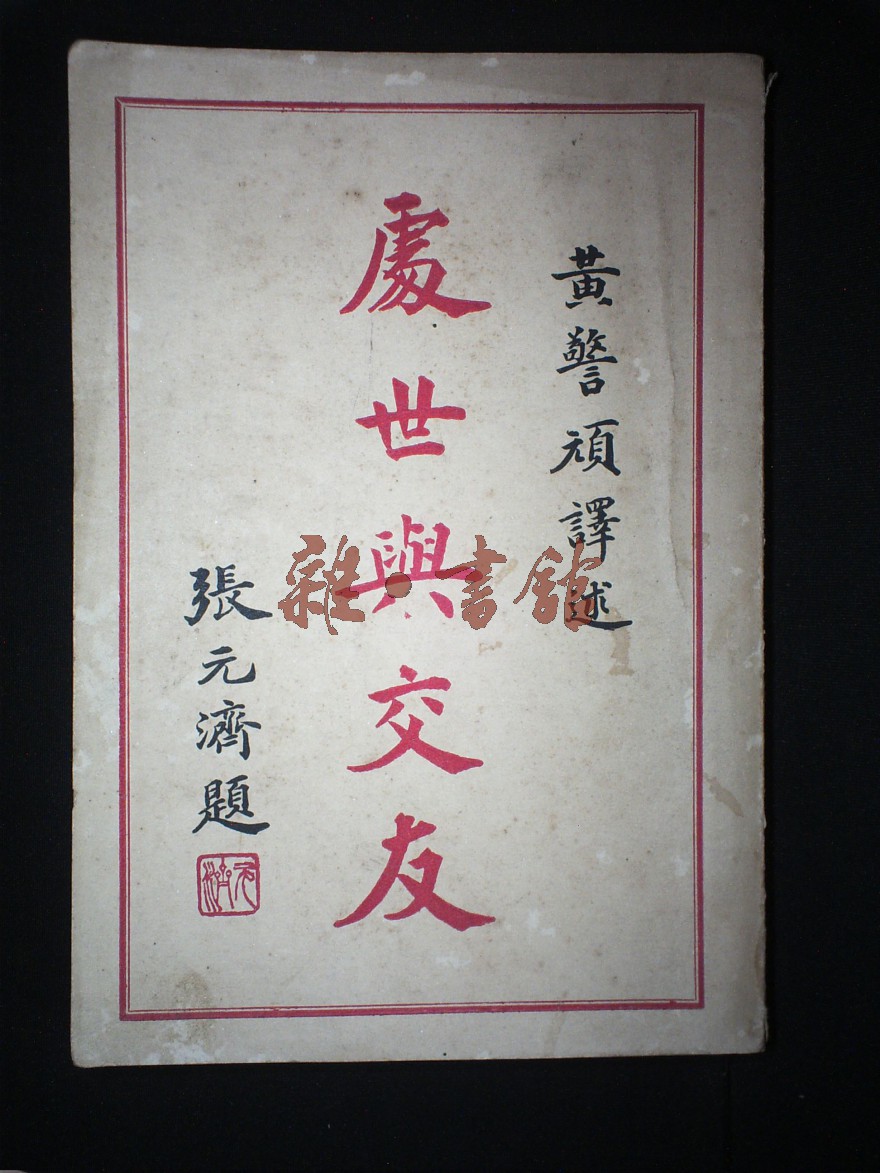 黃警頑譯述
處世與交友
張元濟題
元濟
雜·書館